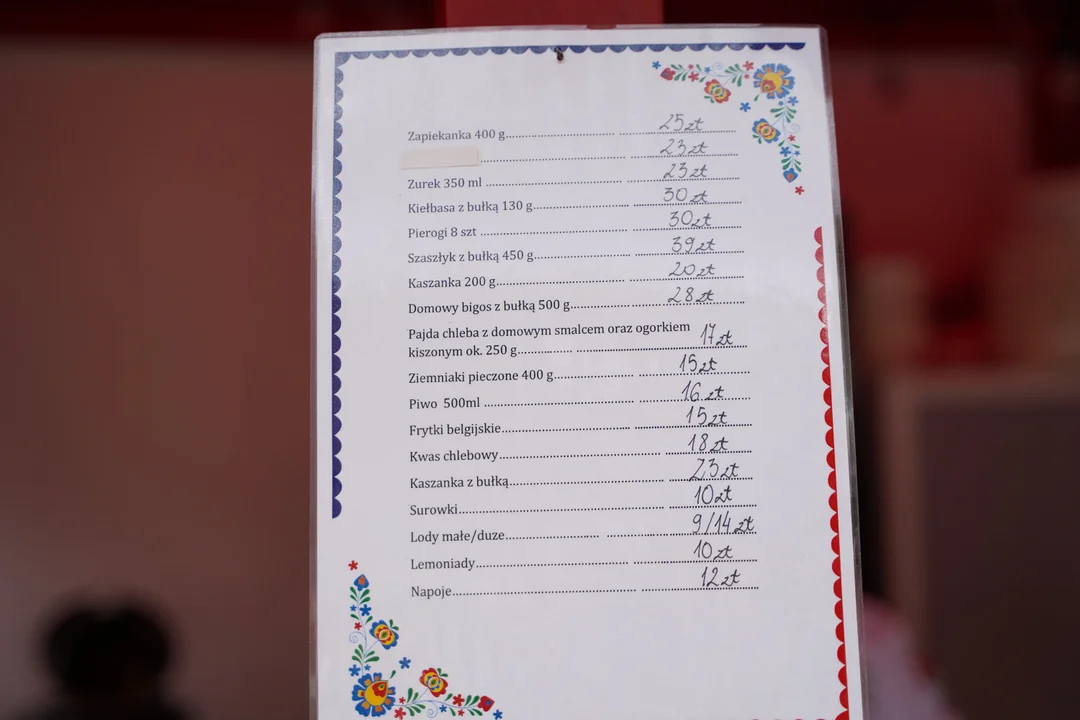 Zapiekanka 400 g.................................... 25 zł
.................................... 23 zł
Zurek 350 ml .................................... 23 zł
Kiełbasa z bułką 130 g.................................... 30 zł
Pierogi 8 szt .................................... 30 zł
Szaszłyk z bułką 450 g.................................... 39 zł
Kaszanka 200 g.................................... 20 zł
Domowy bigos z bułką 500 g.................................... 28 zł
Pajda chleba z domowym smalcem oraz ogorkiem
kiszonym ok. 250 g.................................... 17 zł
Ziemniaki pieczone 400 g.................................... 15 zł
Piwo 500ml .................................... 16 zł
Frytki belgijskie.................................... 15 zł
Kwas chlebowy.................................... 18 zł
Kaszanka z bułką.................................... 23 zł
Surowki.................................... 10 zł
Lody małe/duze.................................... 9/14 zł
Lemoniady.................................... 10 zł
Napoje.................................... 12 zł